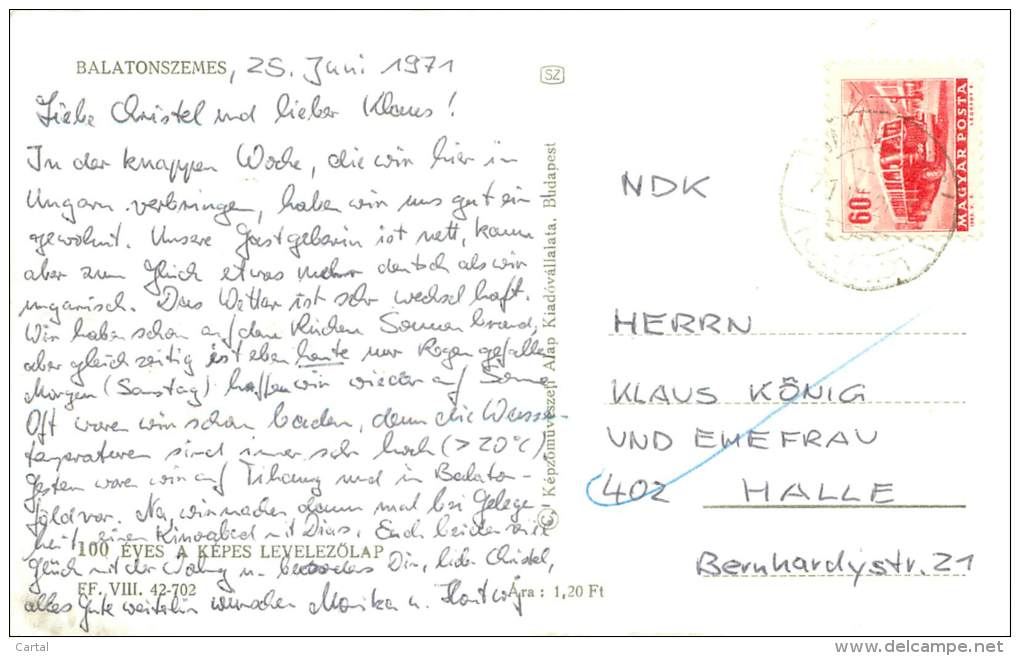 BALATONSZEMES, 25. Juni 1971
Liebe Christel und lieber Klaus!
In der knappen Woche, die wir hier in
Ungarn verbringen, haben wir uns gut ein
gewöhnt. Unsere Gastgeberin ist nett, kann
aber zum Glück etwas mehr deutsch als wir
ungarisch. Das Wetter ist sehr wechselhaft.
Wir haben schon auf dem Rücken Sonnenbrand,
aber gleichzeitig ist eben heute nur Regen gefallen
Morgen (Samstag) hoffen wir wieder auf Sonne
Oft waren wir schon baden, denn die Wasser-
temperaturen sind immer sehr hoch (>20°C)
Gestern waren wir auf Tihany und in Balaton-
földvar. Na, wir machen dann mal bei Gelegen
heit einen Kinoabend mit Dias. Euch beiden viel
100 ÉVES A KÉPES LEVELEZŐLAP
Glück mit der Wohng u. besonders Dir, liebe Christel,
FF. VIII. 42-702
Ára : 1,20 Ft
alles Gute weiterhin wünschen Monika u. Hartwig
SZ
Képzőművészeti Alap Kiadóvállalata, Budapest
60f
MAGYAR POSTA
NDK
HERRN
KLAUS KÖNIG
UND EHEFRAU
402 HALLE
Bernhardystr. 21
Cartal
www.delcampe.net